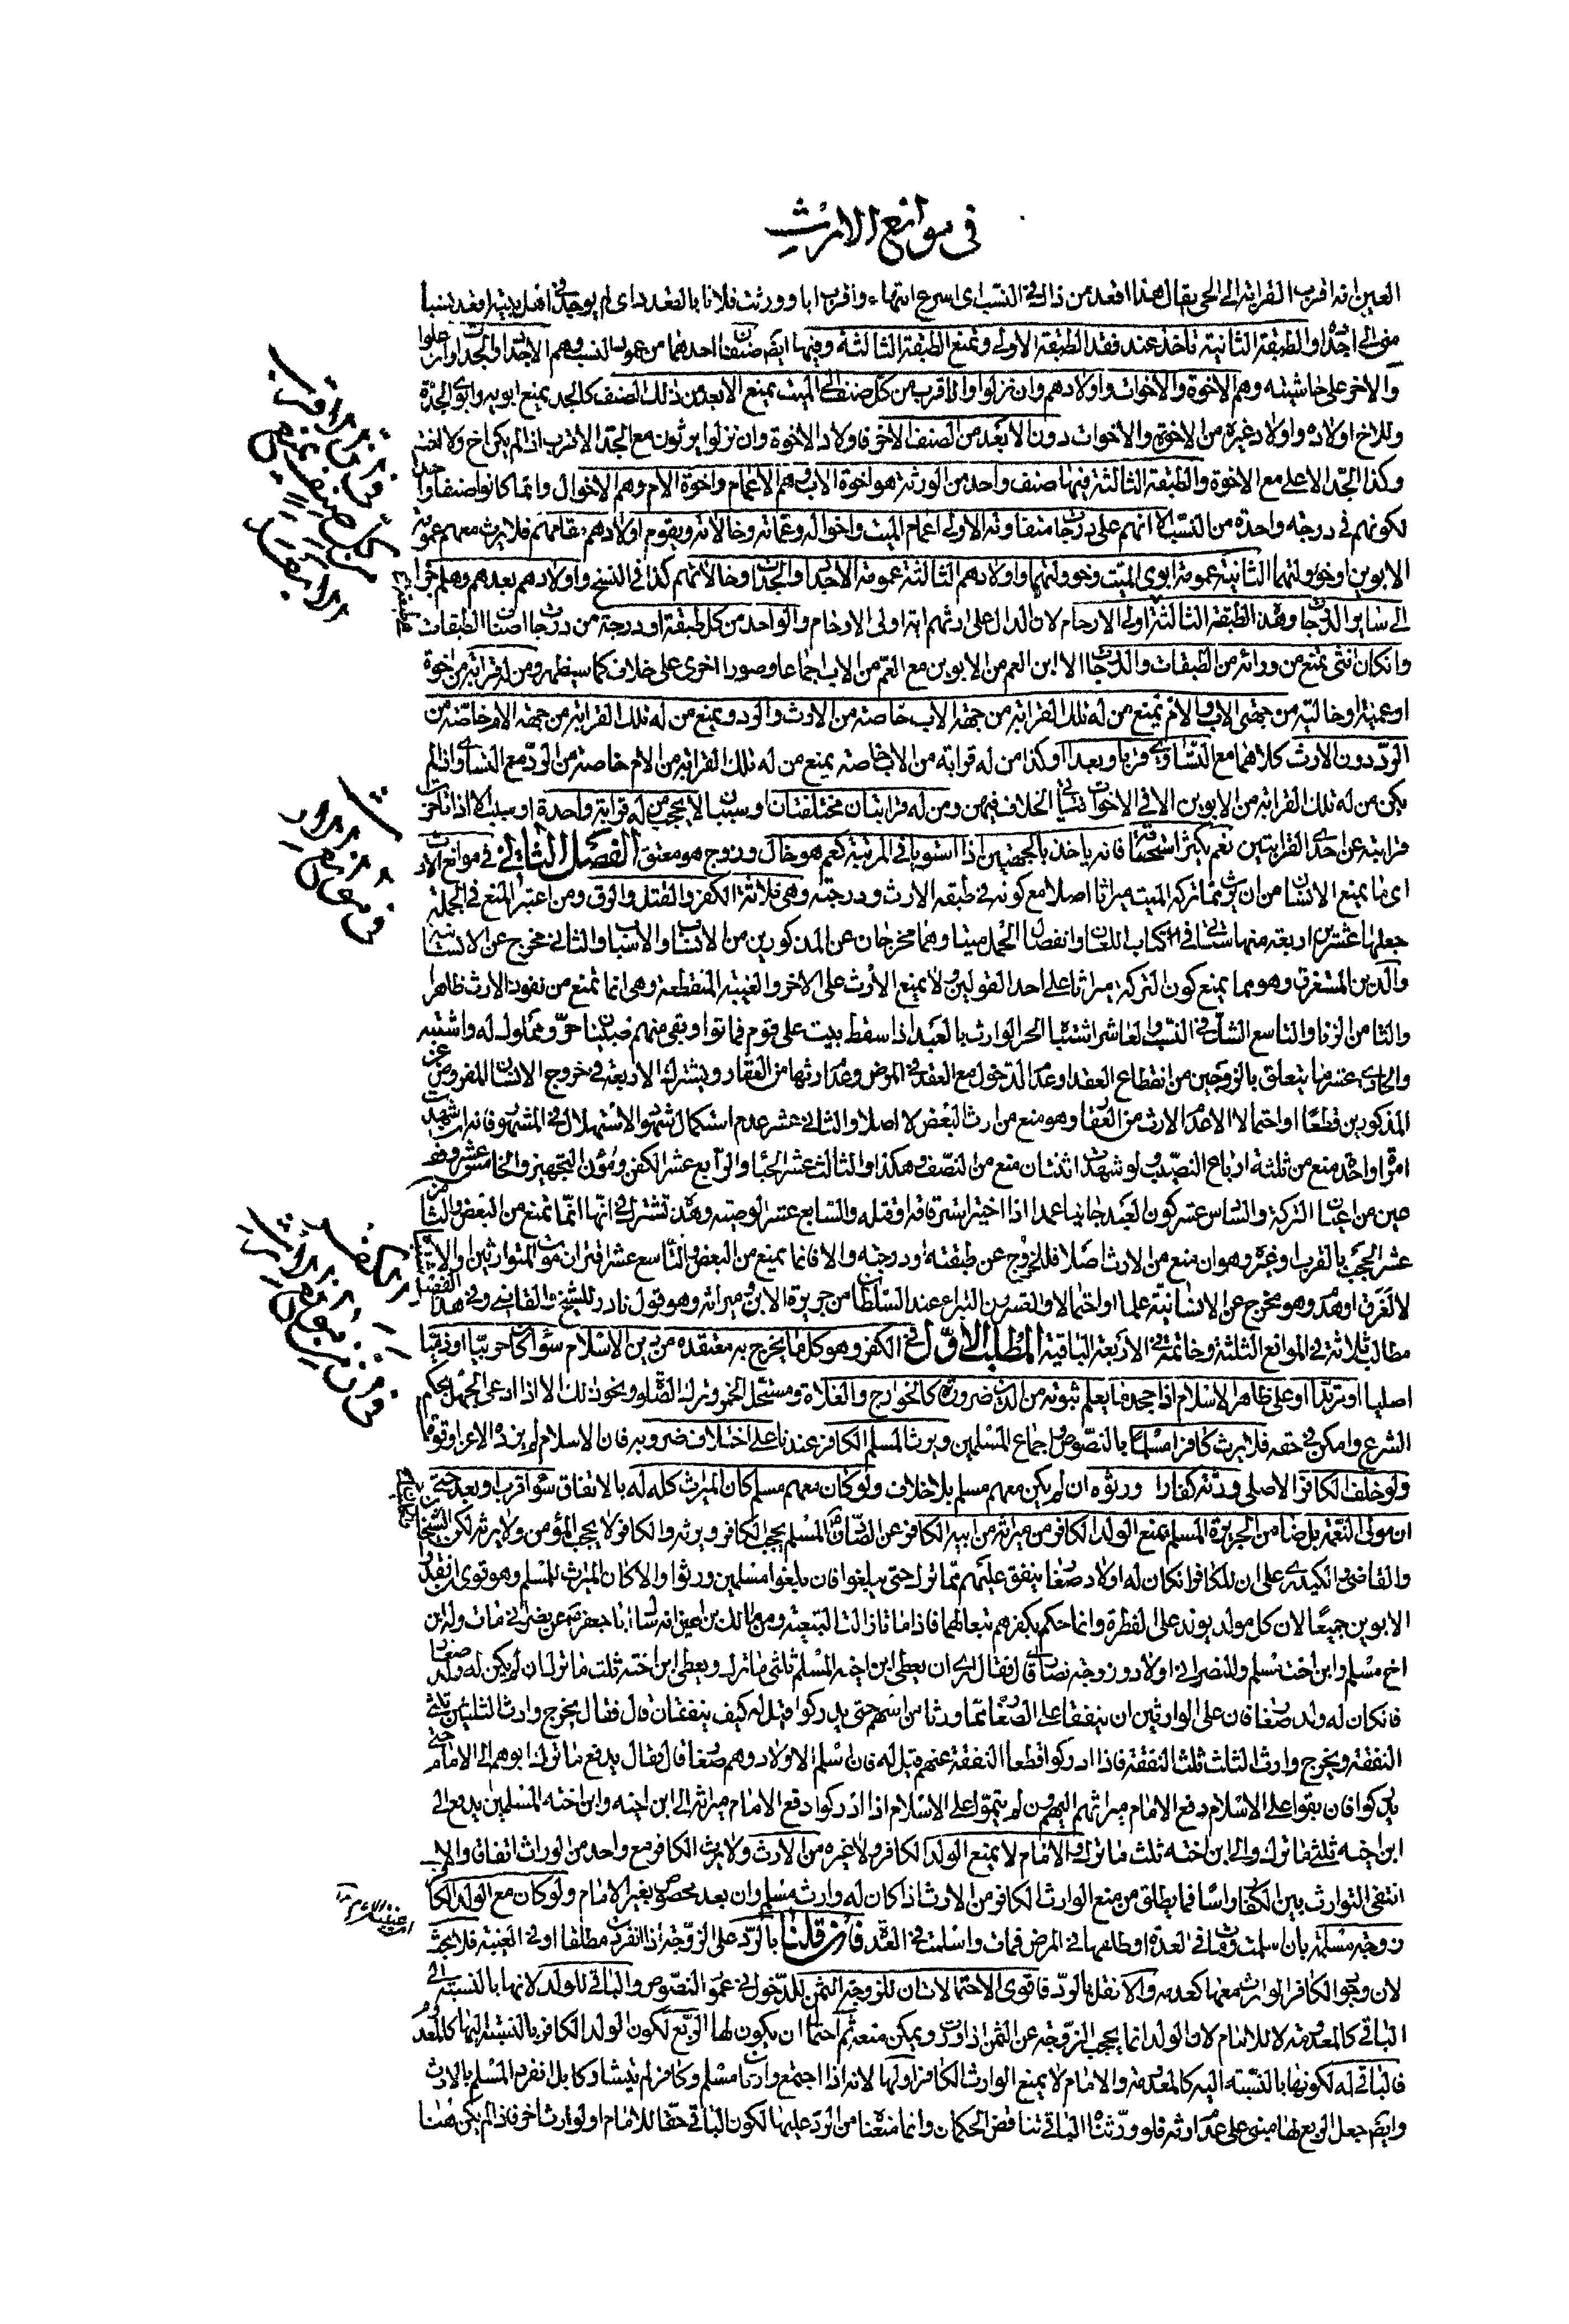 في موانع الارث
العين انه اقرب القرابة الى الحي يقال هذا اقعد من ذاك في النسب اى اسرع انتهاء واقرب ابا وورثت فلانا بالقعدد اى لم يوجد في اهل بيته اقعد نسبا
منى الى اجداده والطبقة الثانية تاخذ عند فقد الطبقة الاولى وتمنع الطبقة الثالثة وفيها ايضا صنفان احدهما من عمود النسب وهم الاجداد والجدات وان علوا
والاخر على حاشيته وهم الاخوة والاخوات واولادهم وان نزلوا والاقرب من كل صنف الى الميت يمنع الابعد من ذلك الصنف كالجد يمنع ابويه وابوى الجدة
وللاخ اولاده واولاد غيره من الاخوة والاخوات دون الابعد من الصنف الاخر فاولاد الاخوة وان نزلوا يرثون مع الجد الاقرب اذا لم يكن اخ ولا اخت
وكذا الجد الاعلى مع الاخوة والطبقة الثالثة فيها صنف واحد من الورثة هو اخوة الاب وهم الاعمام واخوة الام وهم الاخوال وانما كانوا صنفا واحدا
لكونهم في درجة واحدة من النسب الا انهم على درجات متفاوتة الاولى اعمام الميت واخواله وعماته وخالاته ويقوم اولادهم مقامهم فلا يرث معهم عمومة
الابوين او خؤولتهما الثانية عمومة ابوى الميت وخؤولتهما واولادهم الثالثة عمومة الاجداد والجدات وخالاتهم كذا في النسخ واولادهم بعدهم وهلم جرا
الى ساير الدرجات وهذه الطبقة الثالثة اولى الارحام لان الدال على ارثهم اية اولى الارحام والواحد من كل طبقة او درجة من درجات اصناف الطبقات
وان كان انثى يمنع من ورائه من الطبقات والدرجات الا ابن العم من الابوين مع العم من الاب اجماعا وصورا اخرى على خلاف كما سيظهر ومن له قرابة من اخوة
او عمية او خالية من جهتى الاب والام يمنع من له تلك القرابة من جهة الاب خاصة من الارث والرد ويمنع من له تلك القرابة من جهة الام خاصة من
الرد دون الارث كلاهما مع التساوى قربا وبعدا وكذا من له قرابة من الاب خاصة يمنع من له تلك القرابة من الام خاصة من الرد مع التساوى اذا لم
يكن من له تلك القرابة من الابوين الا في الاخوات سياتى الخلاف فيهن ومن له قرابتان مختلفتان او سببان لا يحجب من له قرابة واحدة او سبب الا اذا تاخرت
قرابته عن احدى القرابتين نعم يكثر استحقاقه فانه ياخذ بالجهتين اذا استويا في المرتبة كعم هو خال وزوج هو معتق الفصل الثاني في موانع الارث
اى ما يمنع الانسان من ان يرث مما تركه الميت ميراثا اصلا مع كونه في طبقة الارث ودرجته وهي ثلاثة الكفر والقتل والرق ومن اعتبر المنع في الجملة
جعلها عشرين اربعة منها
والدين المستغرق وهو مما يمنع كون التركة ميراثا على احد القولين ولا يمنع الارث على الاخر والغيبة المنقطعة وهي انما تمنع من نفوذ الارث ظاهرا
والثامن الزنا والتاسع الشك في النسب والعاشر اشتباه الحر الوارث بالعبد اذا سقط بيت على قوم فماتوا وبقى منهم صبيان حر ومملوك له واشتبه
والحادى عشر ما يتعلق بالزوجين من انقطاع العقد او عدم الدخول مع العقد في المرض وعدم ارثها من العقار ويشترك الاربعة في خروج الانسان المفروض عن
المذكورين قطعا او احتمالا الا عدم الارث من العقار وهو منع من ارث البعض لا اصلا والثاني عشر عدم استكمال شهود الاستهلال في المشهور فانه ان شهدت
امراة واحدة منع من ثلثة ارباع النصيب ولو شهدت اثنتان منع من النصف وهكذا والثالث عشر الحباء والرابع عشر الكفن ومؤن التجهيز والخامس عشر وقف
عين من اعيان التركة والسادس عشر كون العبد جانيا عمدا اذا اختير استرقاقه او قتله والسابع عشر الوصية وهذه تشترك في انها انما تمنع من البعض والثامن
عشر الحجب بالقرب او غيره وهو ان منع من الارث اصلا فللخروج عن طبقته او درجته والا فانما يمنع من البعض والتاسع عشر اقتران موت المتوارثين والاشتباه
لا لغرق او هدم وهو مخرج عن الانسانية علما او احتمالا والعشرون التبرى عند السلطان من جريرة الابن وميراثه وهو قول نادر للشيخ والقاضى وفي هذا الفصل
مطالب ثلاثة في الموانع الثلثة وخاتمة في الاربعة الباقية المطلب الاول في الكفر وهو كل ما يخرج به معتقده من دين الاسلام سواء كان حربيا او ذميا
اصليا او مرتدا او على ظاهر الاسلام اذا جحد ما يعلم ثبوته من الدين ضرورة كالخوارج والغلاة ومستحل الخمر وترك الصلوة ونحو ذلك الا اذا ادعى الجهل بحكم
الشرع وامكن في حقه فلا يرث كافر مسلما بالنصوص واجماع المسلمين ويرث المسلم الكافر عندنا على اختلاف ضروبه فان الاسلام لم يزده الا عزا وقوة
ولو خلف الكافر الاصلى ورثة كفارا ورثوه ان لم يكن معهم مسلم بلا خلاف ولو كان معهم مسلم كان الميراث كله له بالاتفاق سواء قرب او بعد حتى
ان مولى النعمة بل ضامن الجريرة المسلم يمنع الولد الكافر من ميراثه من ابيه الكافر عن الصادق المسلم يحجب الكافر ويرثه والكافر لا يحجب المؤمن ولا يرثه لكن الشيخان
والقاضى والكيدرى على ان للكافر ان كان له اولاد صغار ينفق عليهم مما ترك حتى يبلغوا فان بلغوا مسلمين ورثوا والا كان الميراث للمسلم وهو قوى ان فقد
الابوين جميعا لان كل مولود يولد على الفطرة وانما حكم بكفرهم تبعا لهما فاذا ماتا زالت التبعية ومن مالك بن اعين انه سال ابا جعفر عن نصراني مات وله ابن
اخ مسلم وابن اخت مسلم وللنصراني اولاد وزوجة نصارى قال فقال ارى ان يعطى ابن اخيه المسلم ثلثى ما ترك ويعطى ابن اخته ثلث ما ترك ان لم يكن له ولد صغار
فان كان له ولد صغار فان على الوارثين ان ينفقا على الصغار مما ورثا من ابيهم حتى يدركوا قيل له كيف ينفقان قال فقال يخرج وارث الثلثين ثلثى
النفقة ويخرج وارث الثلث ثلث النفقة فاذا ادركوا قطعا النفقة عنهم قيل له فان اسلم الاولاد وهم صغار قال فقال يدفع ما ترك ابوهم الى الامام حتى
يدركوا فان بقوا على الاسلام دفع الامام ميراثهم اليهم وان لم يتموا على الاسلام اذا ادركوا دفع الامام ميراثه الى ابن اخيه وابن اخته المسلمين يدفع الى
ابن اخيه ثلثى ما ترك والى ابن اخته ثلث ما ترك والامام لا يمنع الولد الكافر ولا غيره من الارث ولا يرث الكافر مع واحد من الوراث اتفاقا والا
انتفى التوارث بين الكفار راسا فما يطلق من منع الوارث الكافر من الارث اذا كان له وارث مسلم وان بعد مخصوص بغير الامام ولو كان مع الولد الكافر
زوجة مسلمة بان اسلمت ومات في العدة او طلقها في المرض فمات واسلمت في العدة فان قلنا بالرد على الزوجة اذا انفردت مطلقا او في الغيبة فلا بحث
لان وجود الكافر الوارث معها كعدمه والا نقل بالرد فاقوى الاحتمالات ان للزوجة الثمن للدخول في عموم النصوص والباقي للولد لانها بالنسبة الى
الباقي كالمعدومة لا للامام لان الولد انما يحجب الزوجة عن الثمن اذا ورث ويمكن منعه ثم احتمال ان يكون لها الربع لكون الولد الكافر بالنسبة اليها كالمعدوم
فالباقي له لكونها بالنسبة اليه كالمعدومة والامام لا يمنع الوارث الكافر او لها لانه اذا اجتمع وارثان مسلم وكافر لم يتشاركا بل انفرد المسلم بالارث
وايضا جعل الربع لها مبنى على عدم ارثه فلو ورثناه الباقي تناقض الحكمان وانما منعنا من الرد عليها لكون الباقي حقا للامام او لوارث اخر فاذا لم يكن هنا